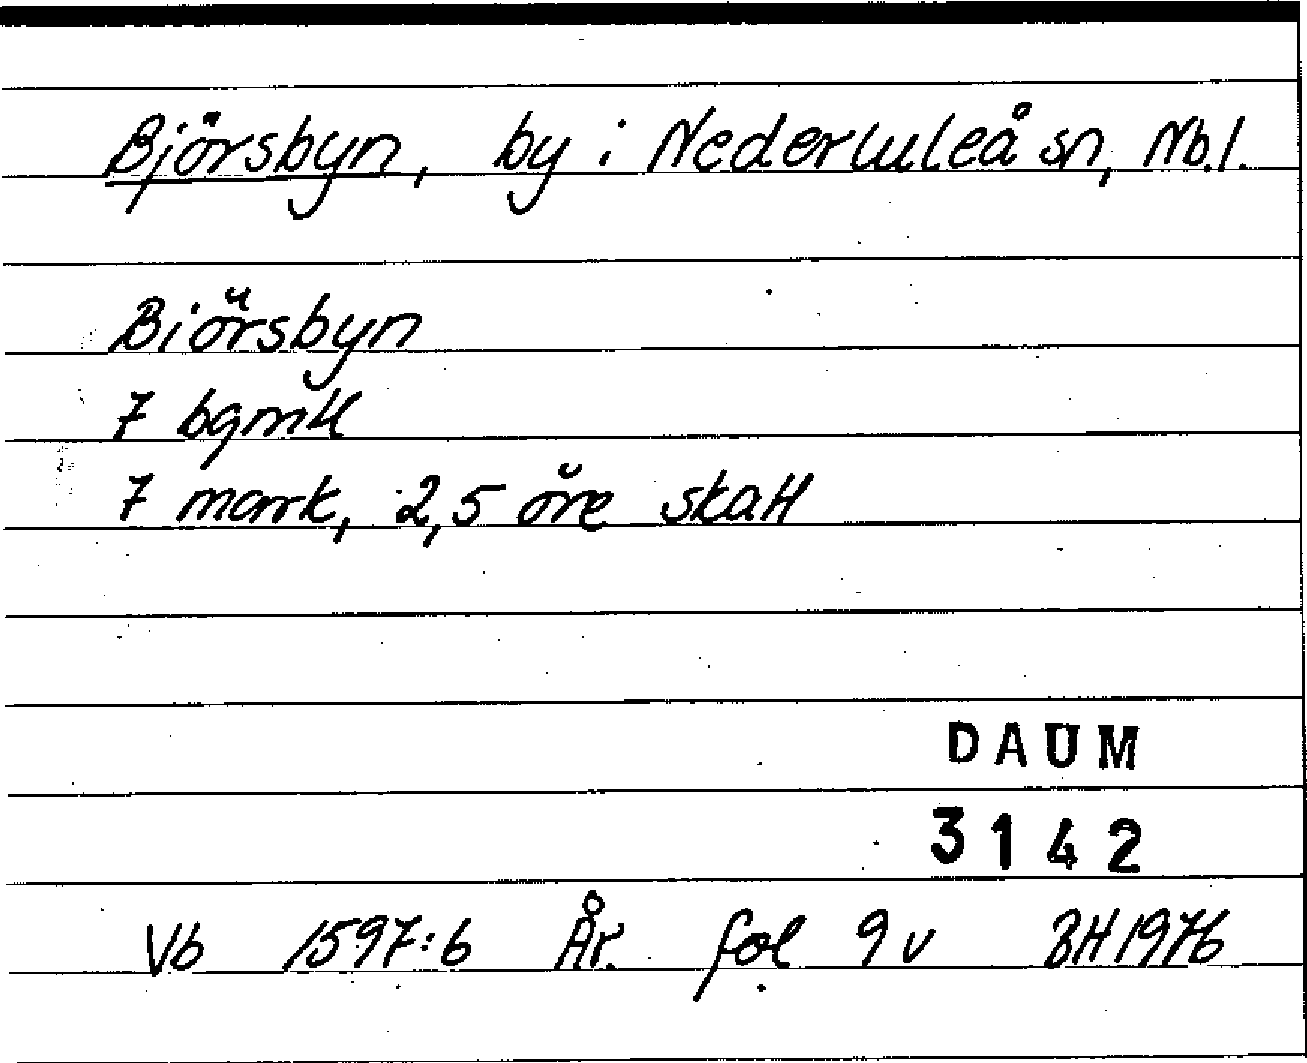 Bjørsbyn, by i Nederluleå sn, Nb.l.
Biörsbyn
7 bgmk
7 mark, 2,5 öre skatt
DAUM
3142
Vb 1597:6 År. fol 9 v BH 1976